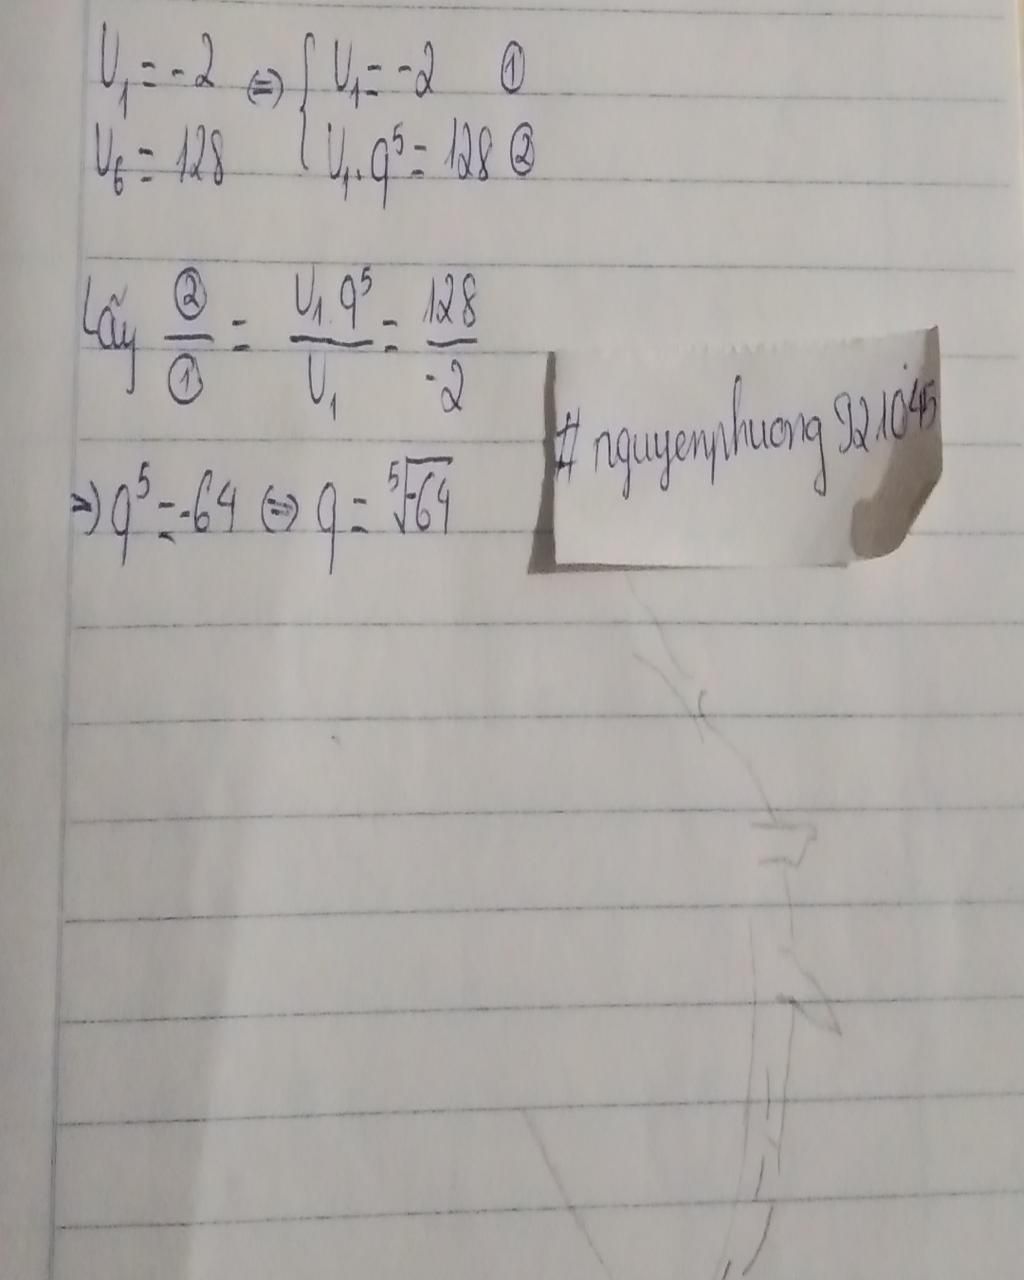 U₁ = -2 ⇔ { U₁ = -2 ①
U₆ = 128 U₁.q⁵ = 128 ②
Lấy ②/① = U₁.q⁵/U₁ = 128/-2
⇒ q⁵ = -64 ⇔ q = ⁵√-64
#nguyenphuong921045